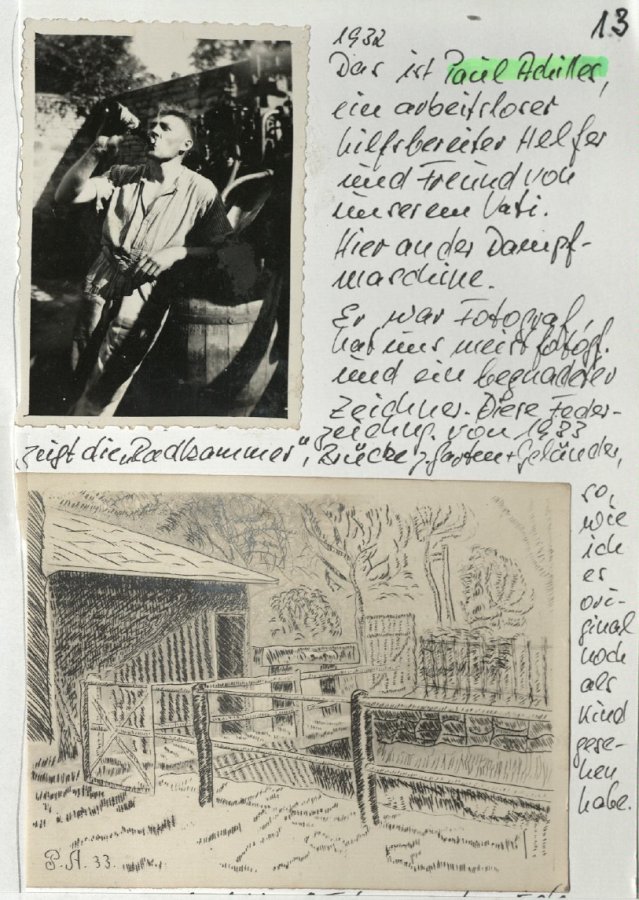 13
1932
Das ist Paul Achilles,
ein arbeitsloser
hilfsbereiter Helfer
und Freund von
unserem Vati.
Hier an der Dampf-
maschine.
Er war Fotograf,
hat uns meist fotogr.
und ein begnadeter
Zeichner. Diese Feder-
zeichng. von 1933
zeigt die „Radlkammer“, Brücke z. Garten + Geländer,
so,
wie
ich
es
ori-
ginal
noch
als
Kind
gese-
hen
habe.
P. A. 33.